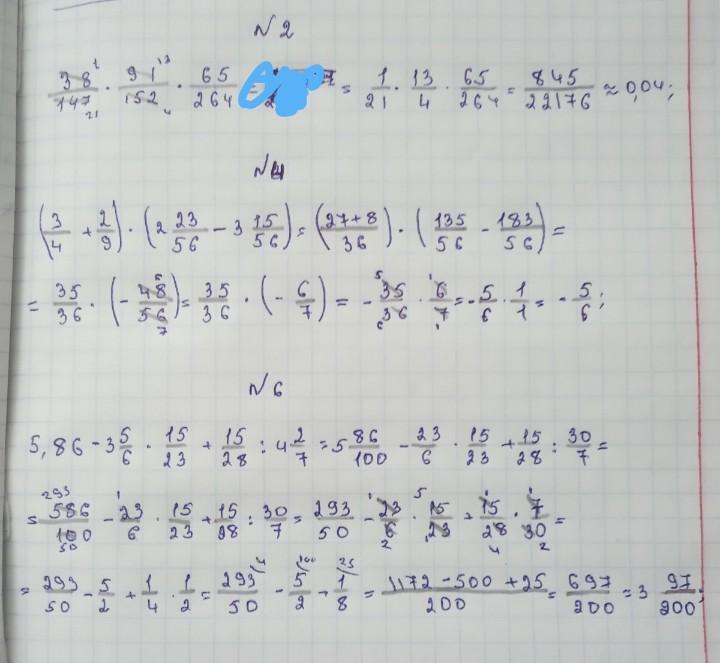 N2
38/147 · 91/152 · 65/264 = 1/21 · 13/4 · 65/264 = 845/22176 ≈ 0,04;
N4
(3/4 + 2/9) · (2 23/56 - 3 15/56) = (27+8/36) · (135/56 - 183/56) =
= 35/36 · (-48/56) = 35/36 · (-6/7) = -35/36 · 6/7 = -5/6 · 1/1 = -5/6;
N6
5,86 - 3 5/6 · 15/23 + 15/28 : 4 2/7 = 5 86/100 - 23/6 · 15/23 + 15/28 : 30/7 =
= 586/100 - 23/6 · 15/23 + 15/28 : 30/7 = 293/50 - 23/6 · 15/23 + 15/28 · 7/30 =
= 293/50 - 5/2 + 1/4 · 1/2 = 293/50 - 5/2 + 1/8 = 1172 - 500 + 25/200 = 697/200 = 3 97/200;